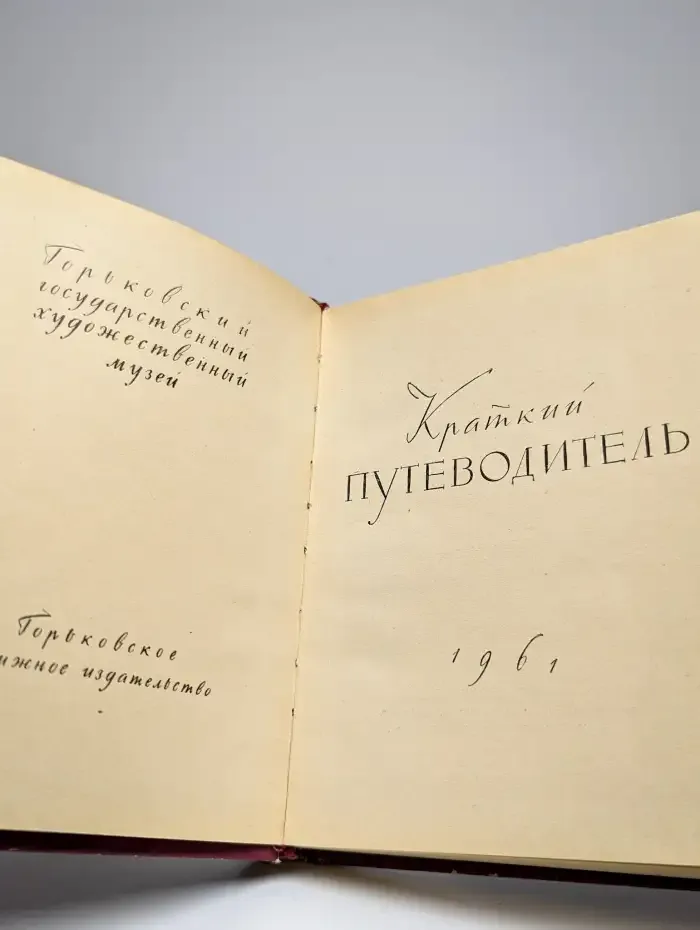 Горьковский
государственный
художественный
музей
Горьковское
ижное издательство
Краткий
ПУТЕВОДИТЕЛЬ
1961